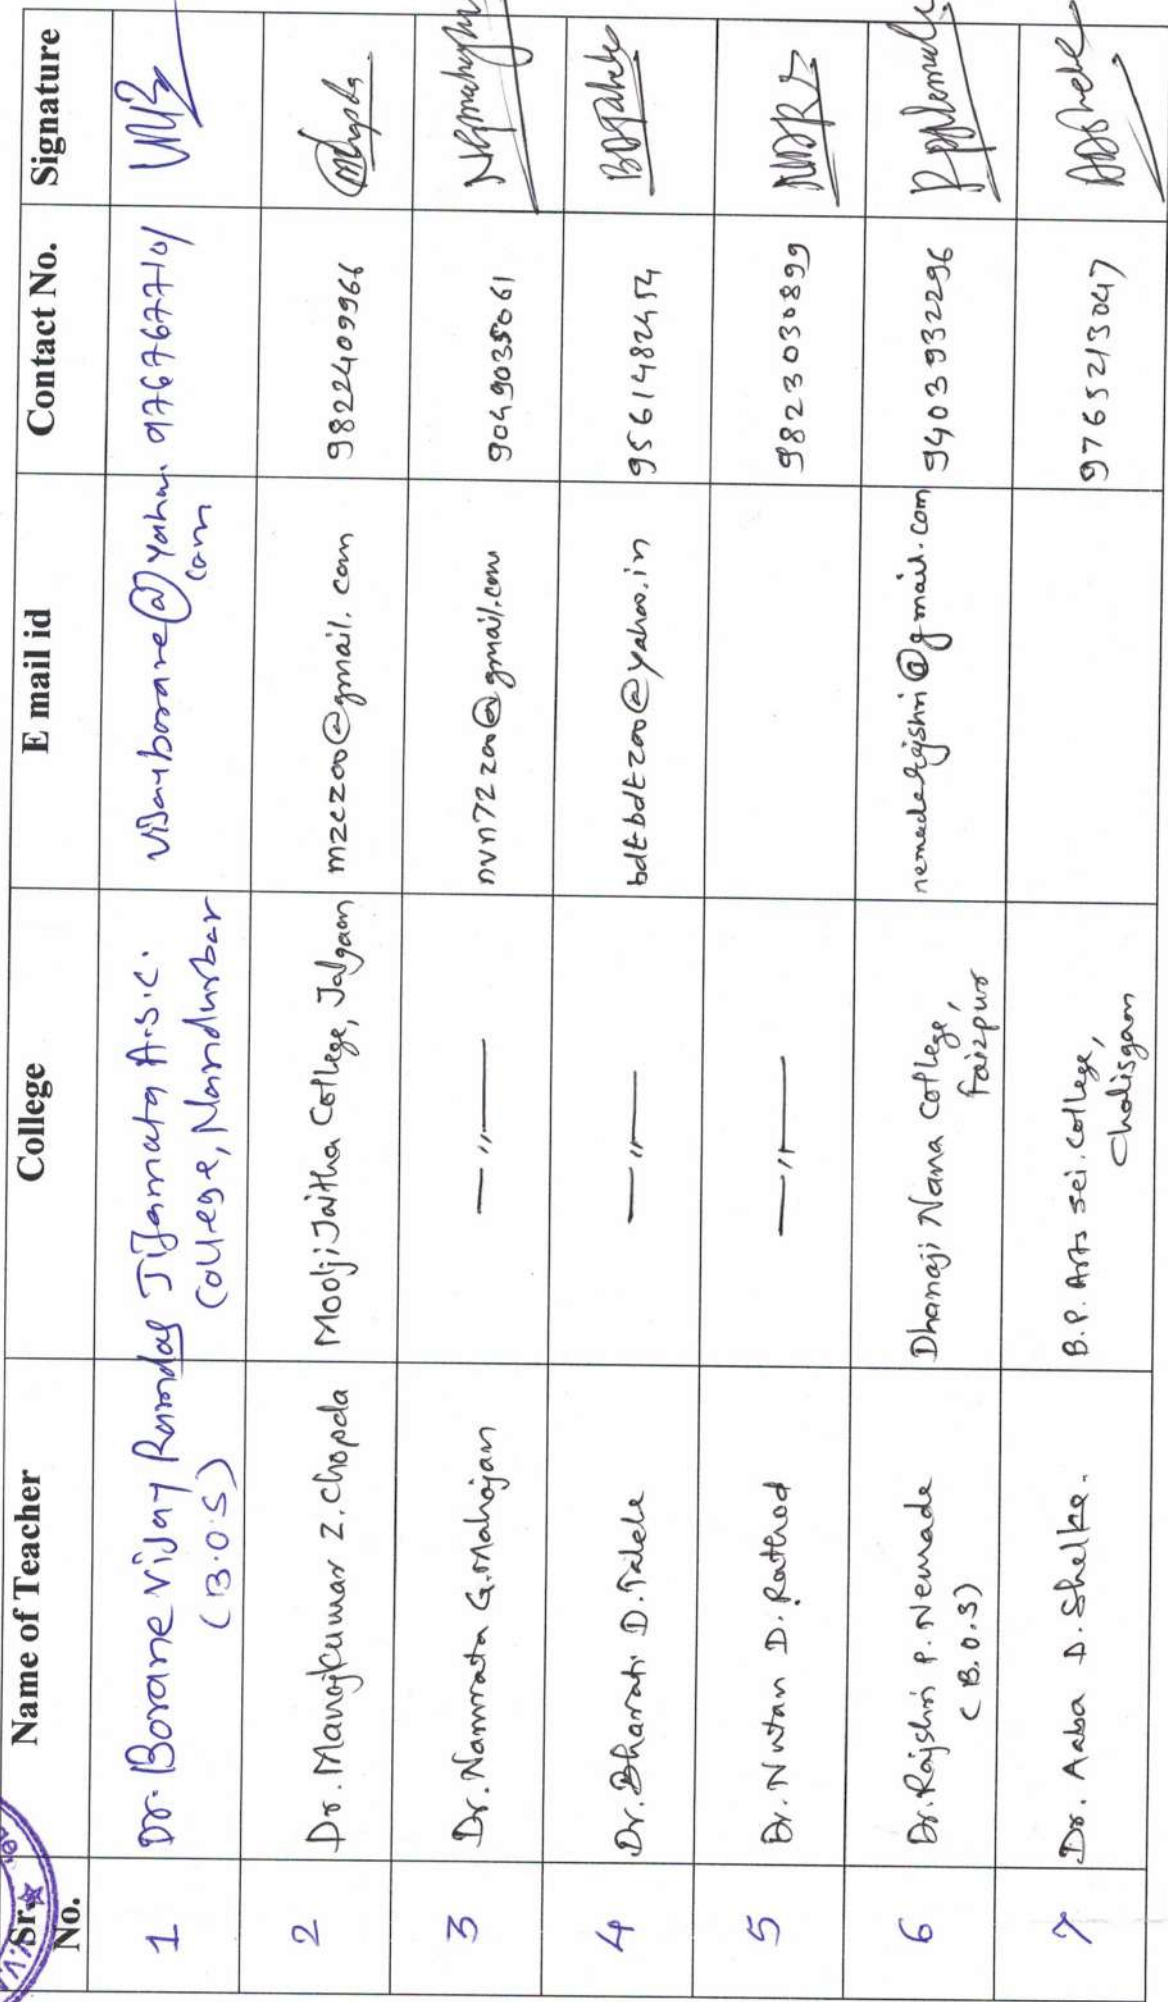 Sr. No. | Name of Teacher | College | E mail id | Contact No. | Signature
1 | Dr. Borane Vijay Ramdas (B.O.S) | Jijamata A.S.C. College, Nandurbar | vijayborane@yahoo.com | 9767677101
2 | Dr. Manojkumar Z. Chopda | Moolji Jaitha College, Jalgaon | mzczoo@gmail.com | 9822409966
3 | Dr. Namrata G. Mahajan | —〃— | nvn72zoo@gmail.com | 9049035061
4 | Dr. Bharati D. Talele | —〃— | bdtbdtzoo@yahoo.in | 9561482454
5 | Dr. Nutan D. Rathod | —〃— | | 9823030899
6 | Dr. Rajshri P. Nemade (B.O.S) | Dhanaji Nana College, Faizpur | nemaderajshri@gmail.com | 9403932296
7 | Dr. Aaba D. Shelke. | B.P. Arts sci. college, Chalisgaon | | 9765213047